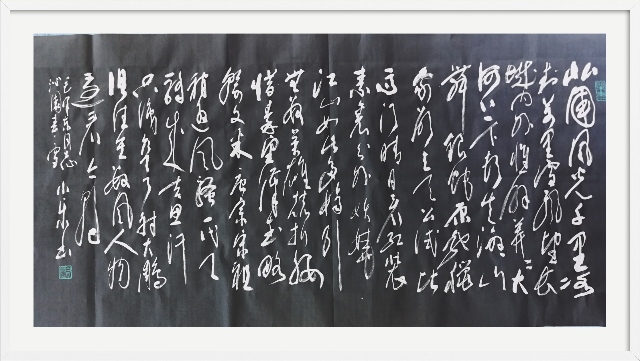 北国风光千里冰
封万里雪飘望长
城内外惟余莽莽大
河上下顿失滔滔山
舞银蛇原驰蜡
象欲与天公试比
高须晴日看红装
素裹分外妖娆
江山如此多娇引
无数英雄竞折腰
惜秦皇汉武略
输文采唐宗宋祖
稍逊风骚一代天
骄成吉思汗
只识弯弓射大雕
俱往矣数风流人物
还看今朝
毛泽东同志
沁园春雪
书